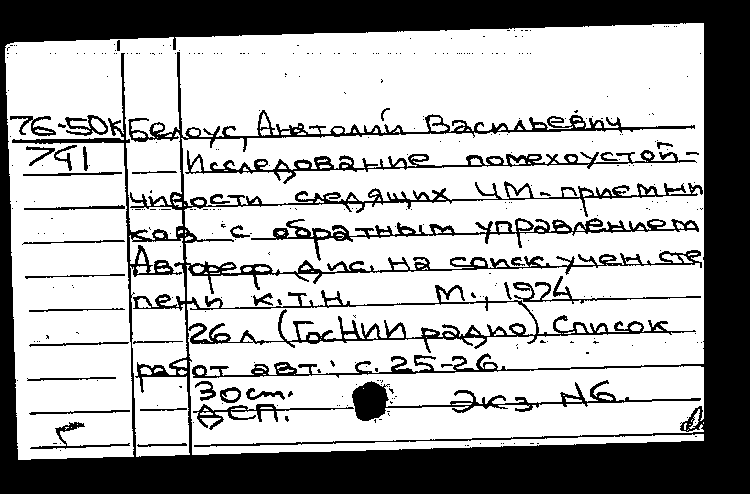 76-50к Белоус, Анатолий Васильевич.
791 Исследование помехоустой-
чивости следящих ЧМ-приемни
ков с обратным управлением
Автореф. дис. на соиск. учен. сте
пени к.т.н. М., 1974.
26 л. (ГосНИИ радио). Список
работ авт.: с. 25-26.
30 ст.
ДСП. Экз. №6.